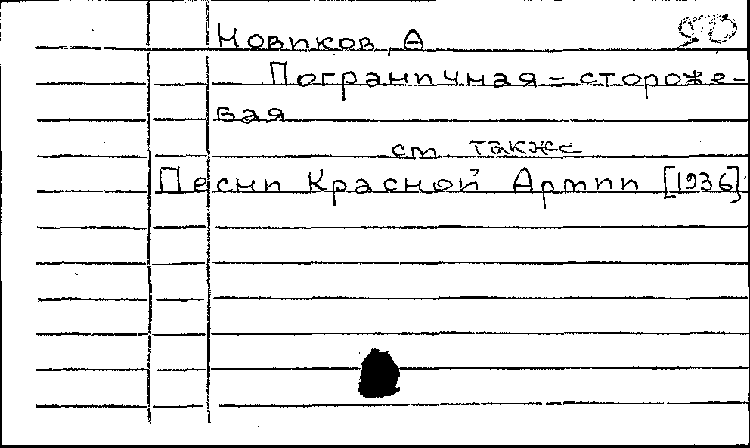 Новиков, А
Пограничная-стороже-
вая
см также
Песни Красной Армии [1936]